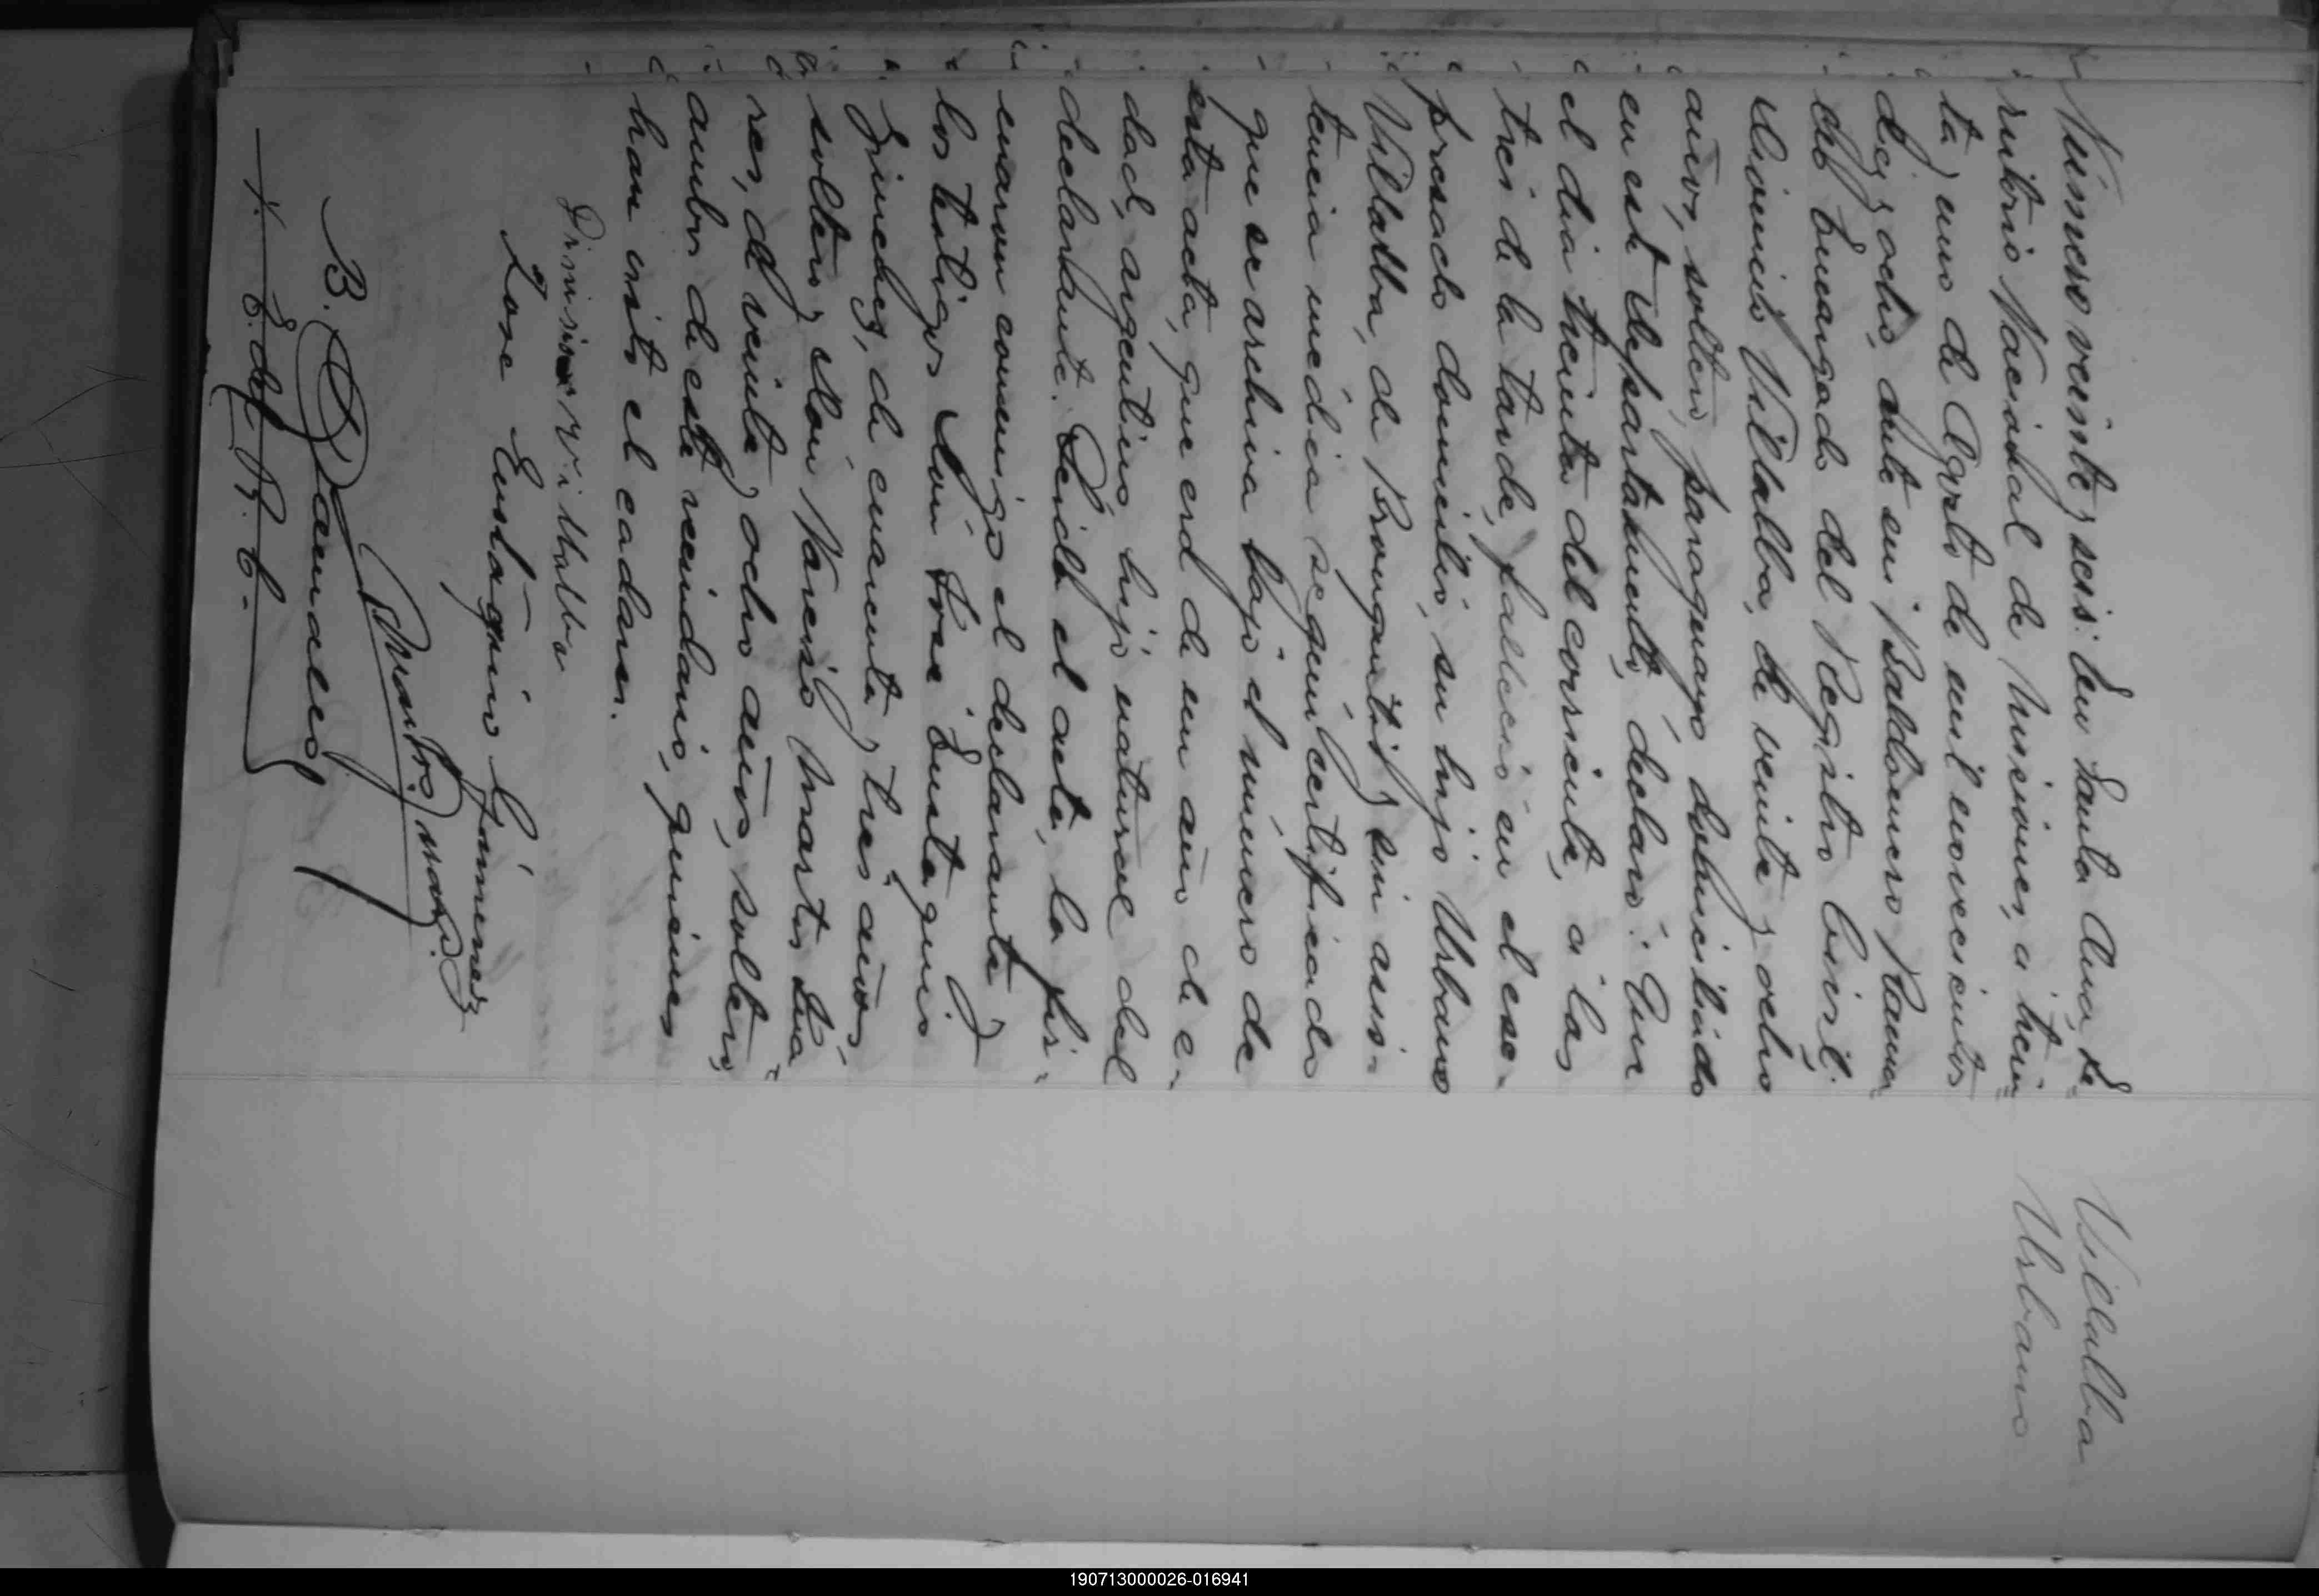 Villalba
Urbano
Número veinte y seis: En Santa Ana, Te=
rritorio Nacional de Misiones, a trein=
ta y uno de Agosto de mil novecientos
diez y ocho, ante mi, Baldomero
cab Encargado del Registro Civil;
Dionisio Villalba, de veinte y ocho
años, soltero, paraguayo domiciliado
en este departamento, declaró: Que
el dia treinta del corriente, a las
tres de la tarde, falleció en el exe-
presado domicilio, su hijo Urbano
Villalba, de Bronquitis y sin asis-
tencia médica según certificado
que se archiva bajo el número de
esta acta; que era de un año de e-
dad, argentino, hijo natural del
declarante. Leida el acta, la fir-
maron conmigo el declarante y
los testigos Don José Eustaquio
Gimenez, de cuarenta y tres años,
soltero y Don Narciso Marto Sua=
res, de veinte y ocho años, soltero,
ambos de este vecindario, quienes
han visto el cadaver.
Dinisio Villalba
Jose Eustaquio Gimenez
B.
E. del R. C.
190713000026-016941